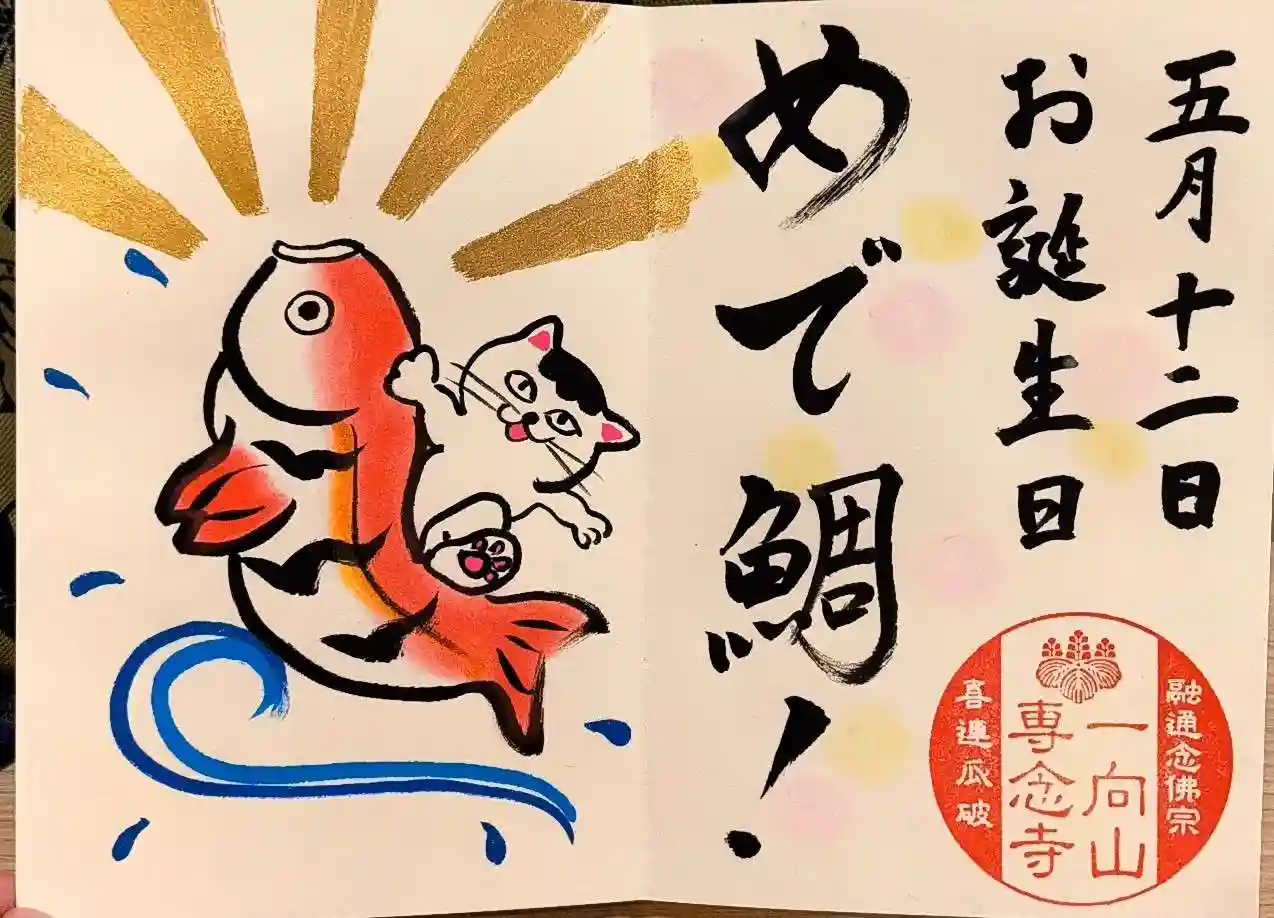 五月十二日
お誕生日
めで鯛!
融通念佛宗
一向山
専念寺
喜連瓜破